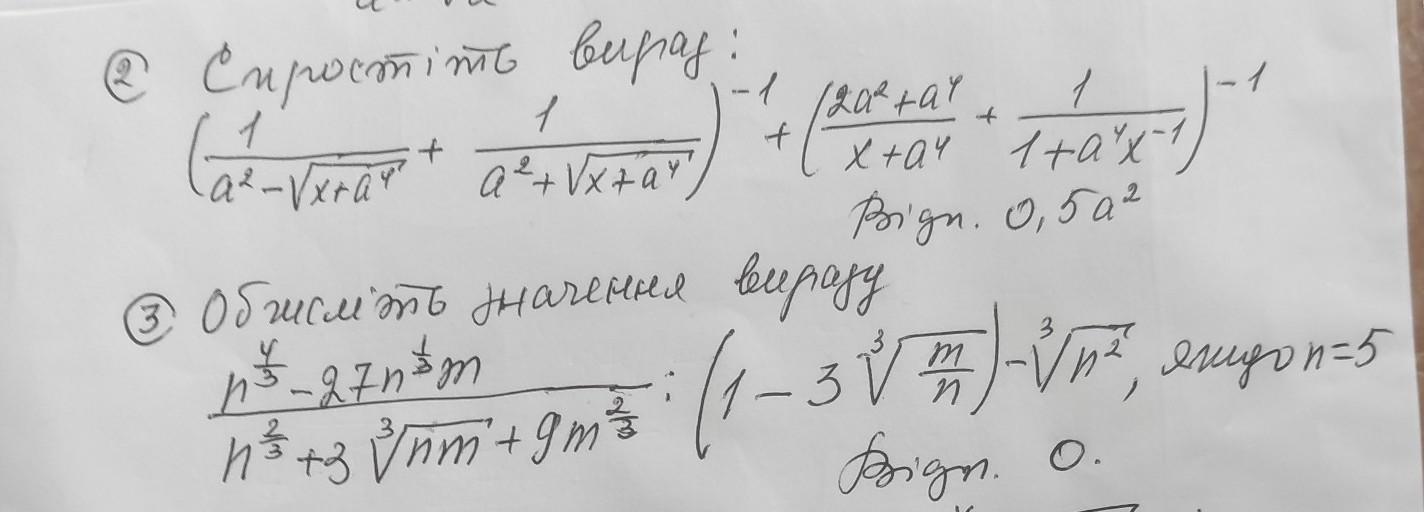 ② Спростіть вираз:
(1/(a² - √(x+a⁴)) + 1/(a² + √(x+a⁴)))⁻¹ + ((2a² + a⁴)/(x+a⁴) + 1/(1+a⁴x⁻¹))⁻¹
Відп. 0,5a²
③ Обчисліть значення виразу
(n^(4/3) - 27n^(1/3)m)/(n^(2/3) + 3∛(nm) + 9m^(2/3)) : (1 - 3∛(m/n)) - ∛(n²), якщо n=5
Відп. 0.